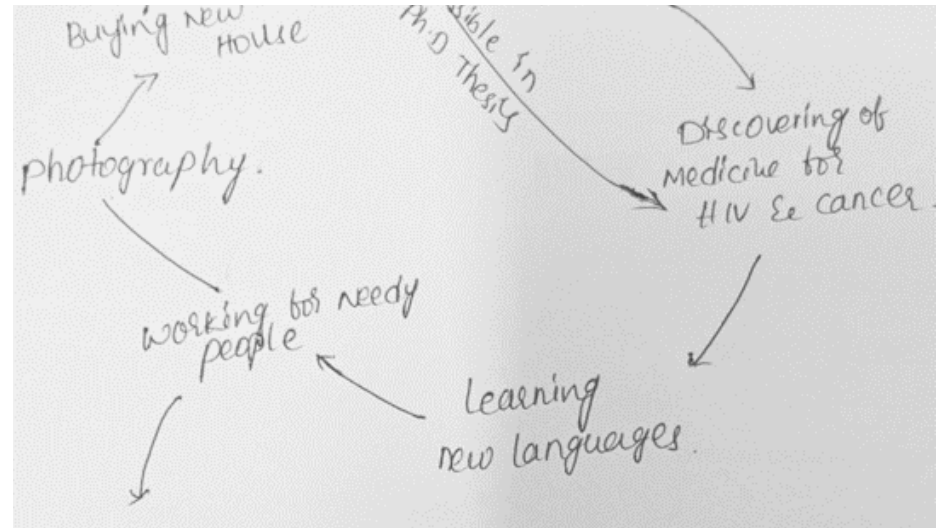 Buying New
House
Photography.
sible in
Ph.D Thesis
Discovering of
Medicine for
HIV & cancer.
Working for Needy
people
Learning
new languages.